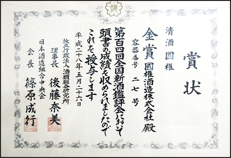 賞状
清酒 国権
金賞 国権酒造株式会社殿
容器番号 二七号
第百四回全国新酒鑑評会において
頭書の成績を収められましたので
これを授与します
平成二十八年五月二十六日
独立行政法人酒類総合研究所
理事長 後藤奈美
日本酒造組合中央会
会長 篠原成行